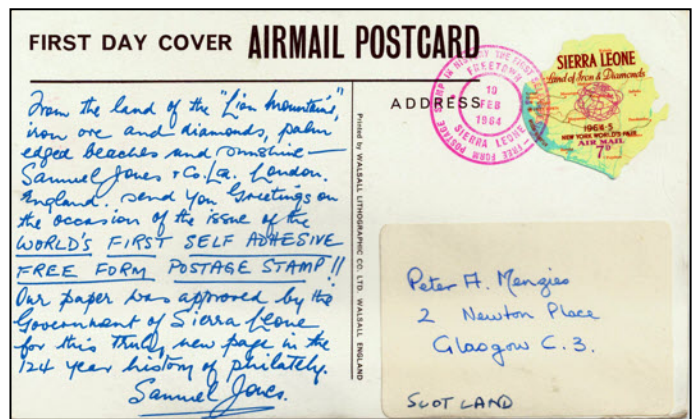 FIRST DAY COVER AIRMAIL POSTCARD
From the land of the "Lion Mountains",
iron ore and diamonds, palm
edged beaches and sunshine —
Samuel Jones & Co. Ltd. London.
England. send you Greetings on
the occasion of the issue of the
WORLD'S FIRST SELF ADHESIVE
FREE FORM POSTAGE STAMP!!
Our paper was approved by the
Government of Sierra Leone
for this truly new page in the
124 year history of philately.
Samuel Jones.
Printed by WALSALL LITHOGRAPHIC CO. LTD. WALSALL ENGLAND
POSTAGE STAMP IN HISTORY THE FIRST
FREE FORM
FREETOWN
19
FEB
1964
SIERRA LEONE
ADDRESS
SIERRA LEONE
Land of Iron & Diamonds
1964-5
NEW YORK WORLD'S FAIR
AIR MAIL
7D
Peter A. Menzies
2 Newton Place
Glasgow C.3.
SCOTLAND